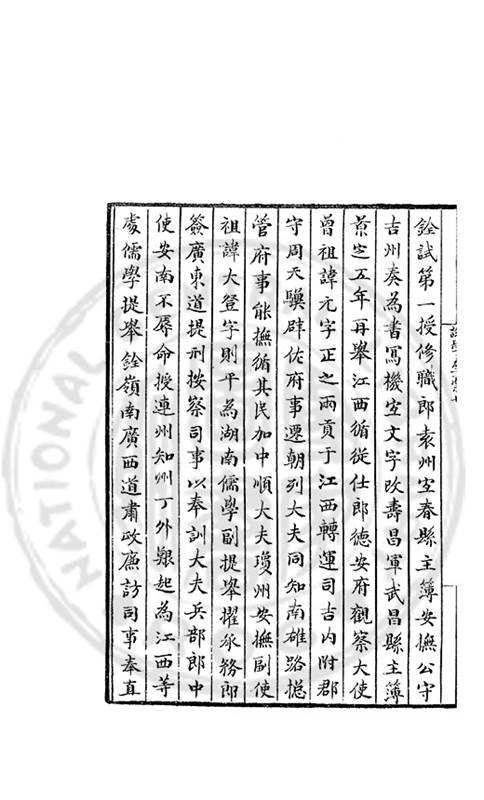 銓試第一授修職郎袁州宜春縣主簿安撫公守
吉州奏為書寫機宜文字改壽昌軍武昌縣主簿
景定五年再舉江西循從仕郎德安府觀察大使
曾祖諱元字正之兩貢于江西轉運司吉內附郡
守周天驥辟佐府事遷朝列大夫同知南雄路摠
管府事能撫循其民加中順大夫瓊州安撫副使
祖諱大登字則平為湖南儒學副提舉擢承務郎
簽廣東道提刑按察司事以奉訓大夫兵部郎中
使安南不辱命授連州知州丁外艱起為江西等
處儒學提舉銓嶺南廣西道肅政廉訪司事奉直
NATIONAL